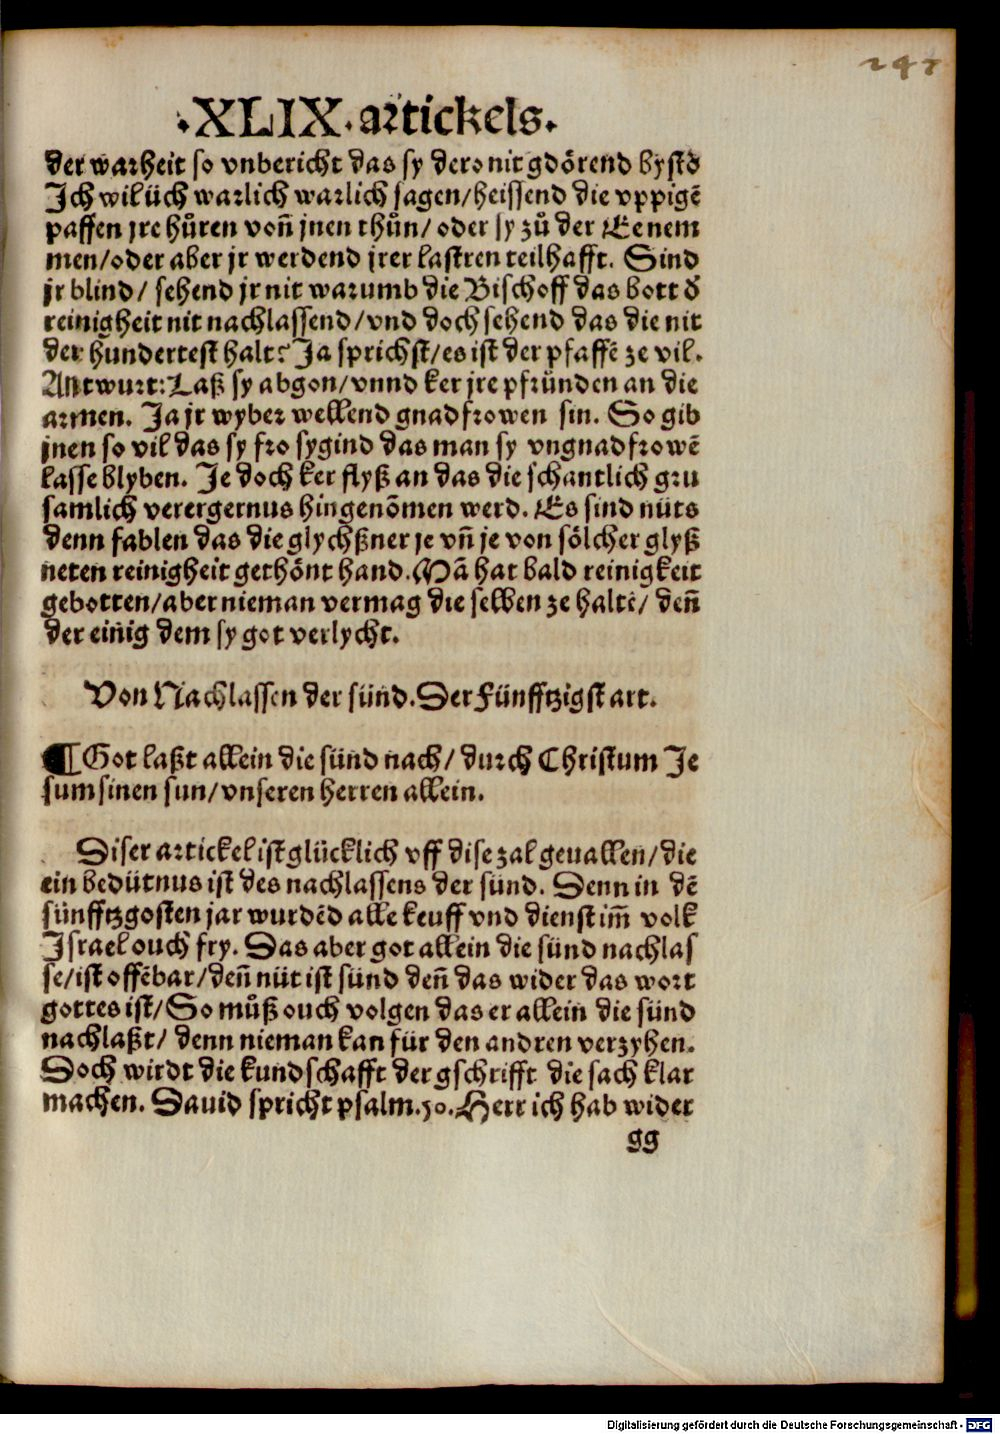 247
.XLIX. artickels.
der warheit so vnbericht das sy dero nit gdörend byst
Ich wil üch warlich warlich sagen/heissend die vppigẽ
paffen jre hůren von̄ jnen thůn/ oder sy zů der Ee nem
men/oder aber jr werdend jrer lastren teilhafft. Sind
jr blind/ sehend jr nit warumb die Bischoff das bott ð
reinigheit nit nachlassend/vnd doch sehend das die nit
der hundertest halt? Ja sprichst/es ist der pfaffẽ ze vil.
Antwurt: Laß sy abgon/vnnd ker jre pfründen an die
armen. Ja jr wyber wellend gnadfrowen sin. So gib
jnen so vil das sy fro sygind das man sy vngnadfrowẽ
lasse blyben. Je doch ker flyß an das die schantlich gru
samlich verergernus hingenõmen werd. Es sind nüts
denn fablen das die glychßner je vn̄ je von sölcher glyß
neten reinigheit gethönt hand. Mã hat bald reinigkeit
gebotten/aber nieman vermag die selben ze haltẽ/ den̄
der einig dem sy got verlycht.
Von Nachlassen der sünd. Der Fünfftzigst art.
¶ Got laßt allein die sünd nach/ durch Christum Je
sum sinen sun/vnseren herren allein.
Diser artickel ist glücklich vff dise zal geuallen/die
ein bedütnus ist des nachlassens der sünd. Denn in dẽ
fünfftzgosten jar wurdẽd alle keuff vnd dienst im̄ volk
Israel ouch fry. Das aber got allein die sünd nachlas
se/ist offẽbar/den̄ nüt ist sünd den̄ das wider das wort
gottes ist/So můß ouch volgen das er allein die sünd
nachlaßt/ denn nieman kan für den andren verzyhen.
Doch wirdt die kundschafft der gschrifft die sach klar
machen. Dauid spricht psalm.50. Herr ich hab wider
gg
Digitalisierung gefördert durch die Deutsche Forschungsgemeinschaft - DFG